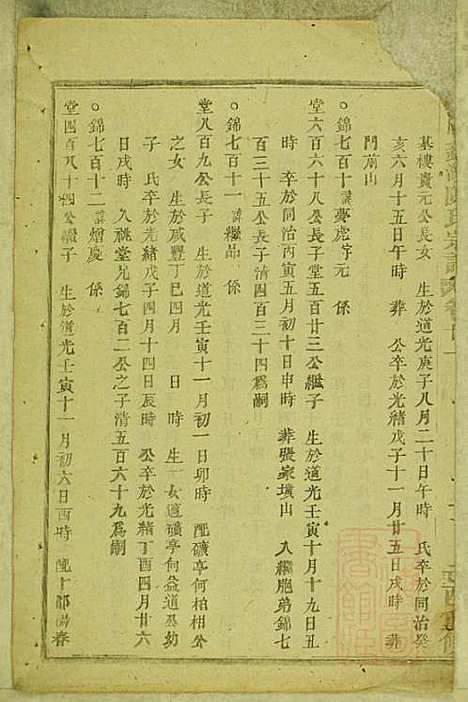 基樓貴元公長女　生於道光庚子八月二十日午時　氏卒於同治癸
亥六月十五日午時　葬　公卒於光緒戊子十一月廿五日戌時　葬
門前山
○錦七百十　諱夢虎字元　係
堂六百六十八公長子堂五百廿三公繼子　生於道光壬寅十月十九日丑
時　卒於同治丙寅五月初十日申時　葬張家壙山　入繼胞弟錦七
百三十五公長子清四百三十四爲嗣
○錦七百十一　諱繼品　係
堂八百九公長子　生於道光壬寅十一月初一日卯時　配礦亭何柏柑公
之女　生於咸豐丁巳四月　日時　生一女適礦亭何益道丞幼
子　氏卒於光緒戊子四月十四日辰時　公卒於光緒丁酉四月廿六
日戌時　入祧堂兄錦七百二公之子清五百六十九爲嗣
○錦七百十二　諱熷慶　係
堂四百八十四公繼子　生於道光壬寅十一月初六日酉時　配十都湯春